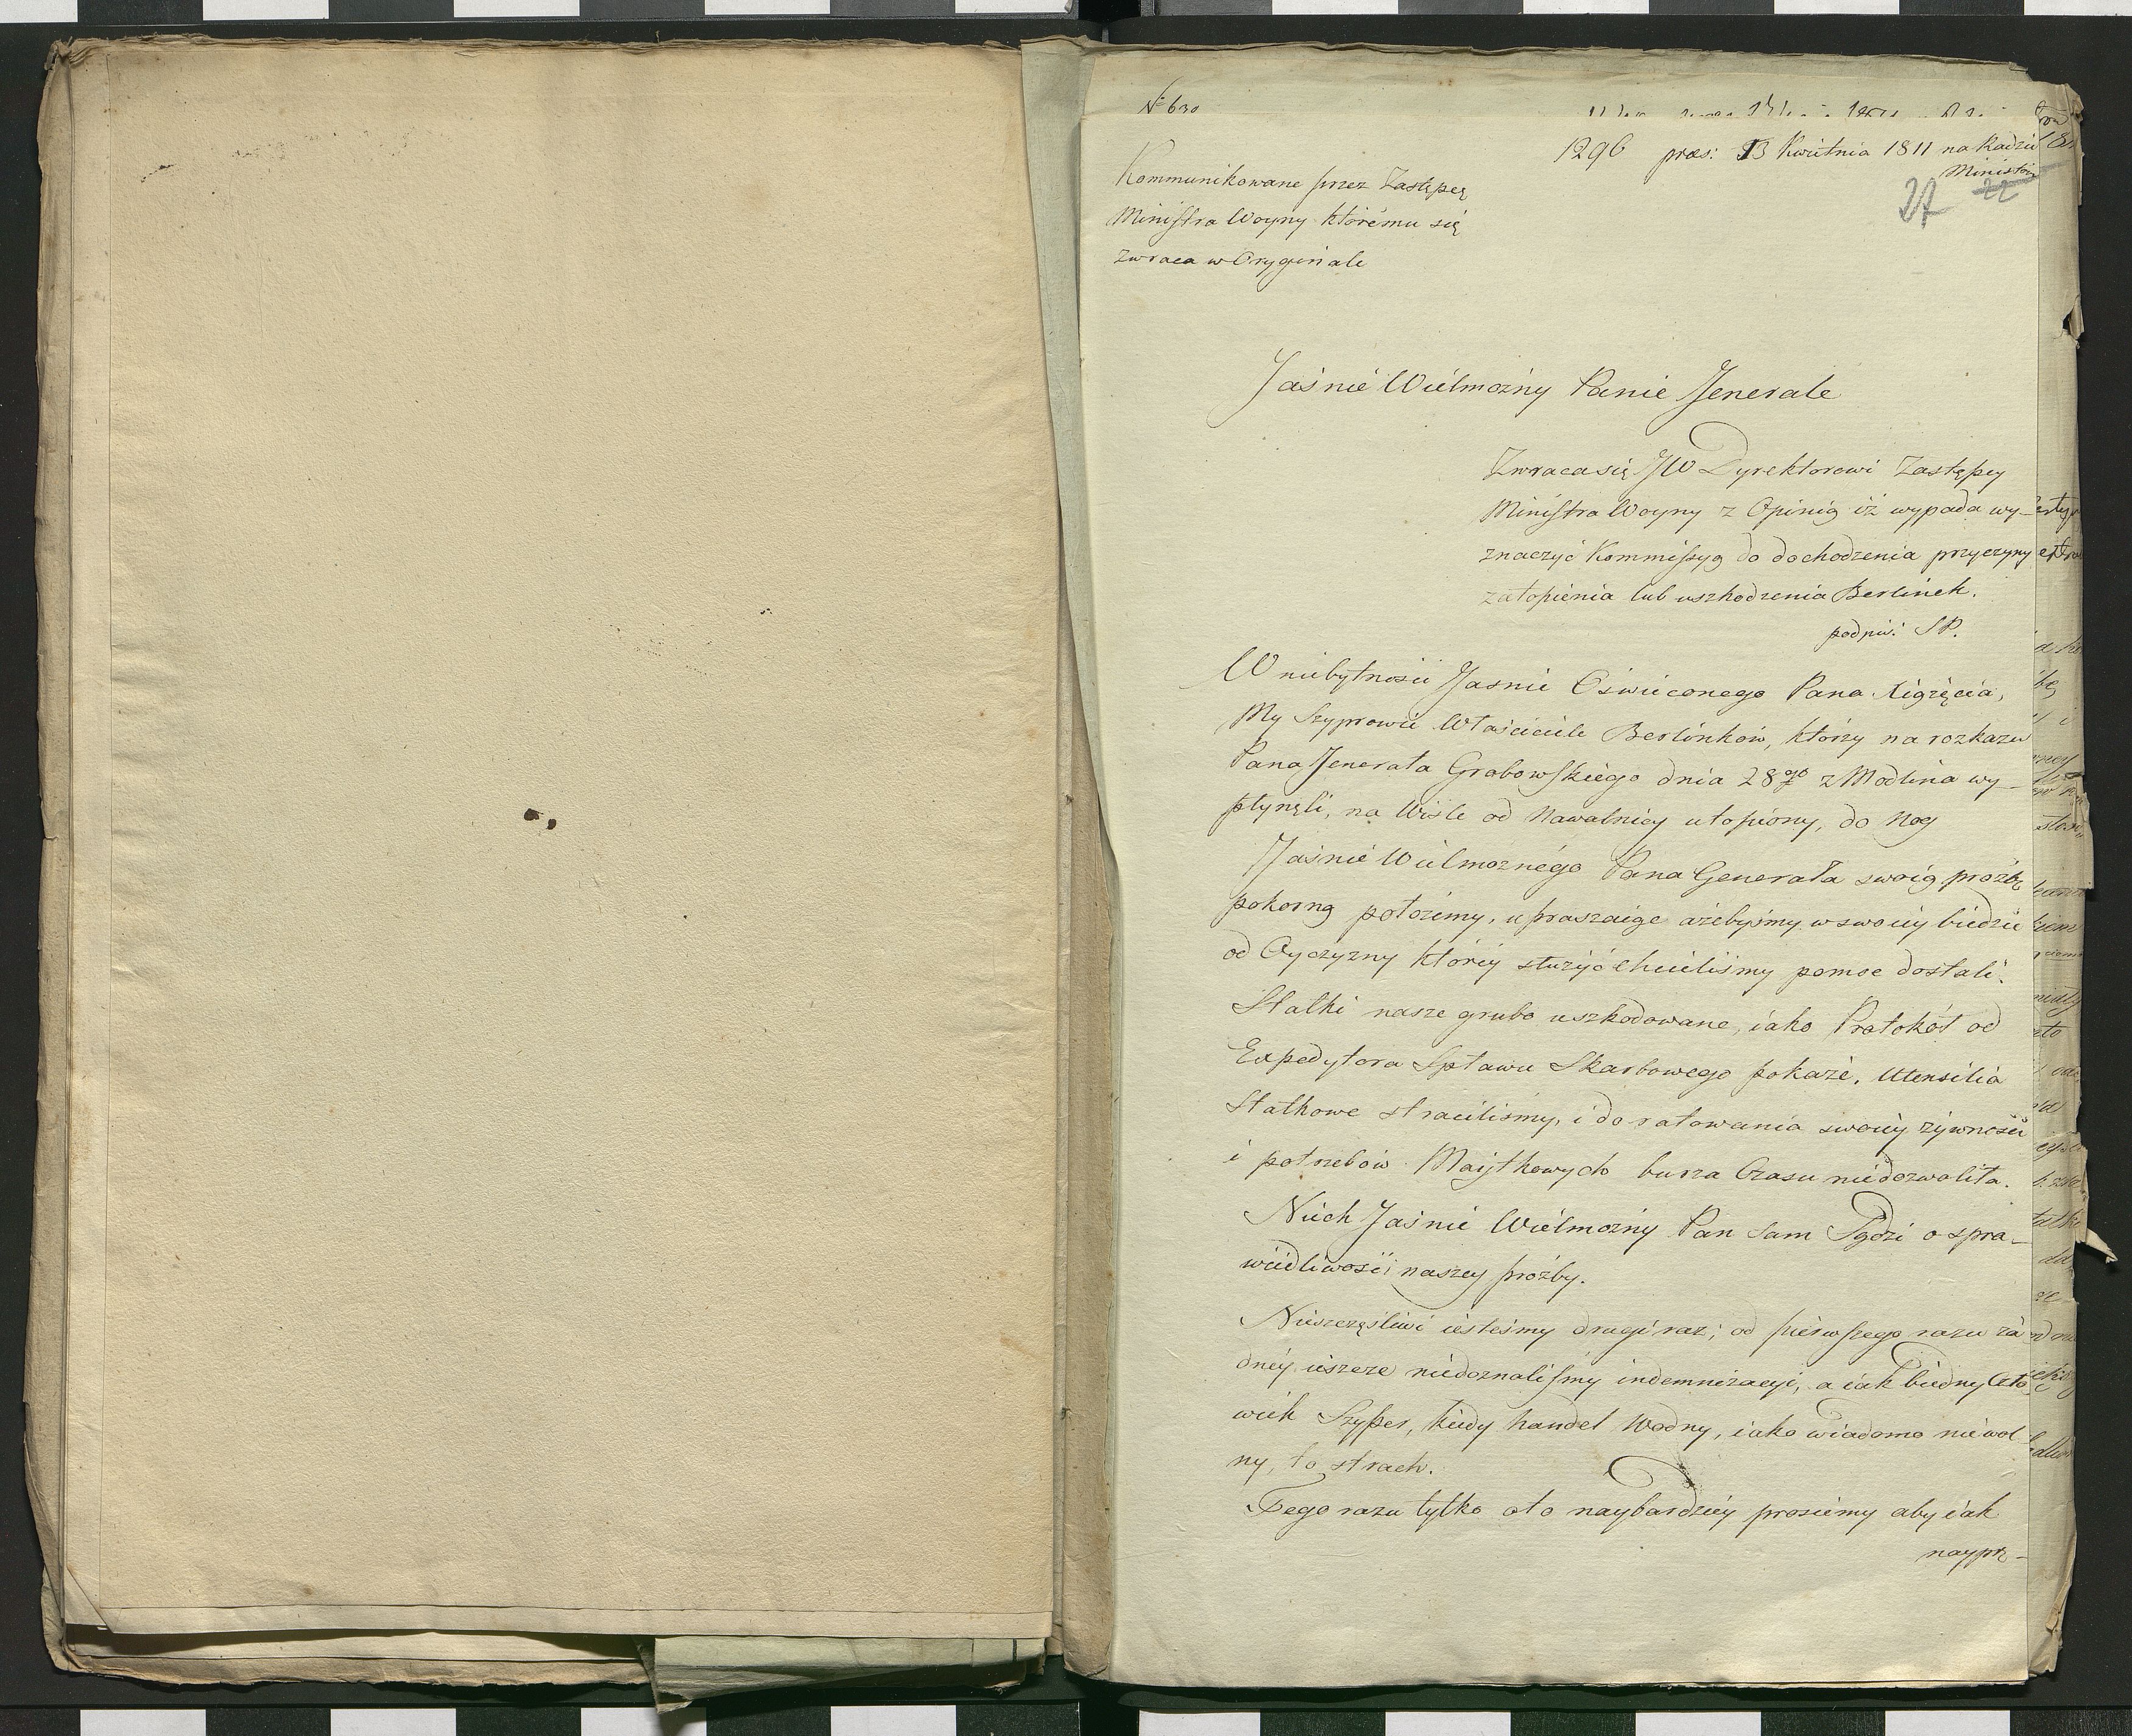 № 630
1296 præs: 13 Kwietnia 1811 na Radzie
Ministrów
27 22
Kommunikowane przez Zastępcę
Ministra Woyny któremu się
zwraca w Oryginale
Jaśnie Wielmożny Panie Jenerale
Zwraca się JW Dyrektorowi Zastępcy
Ministra Woyny z Opinią iż wypada wy-
znaczyć Kommissyą do dochodzenia przyczyny
zatopienia lub uszkodzenia Berlinek.
podpis: SP.
W niebytności Jaśnie Oświeconego Pana Xiążęcia,
My Szyprowie Właściciele Berlinków, którzy na rozkazu
Pana Jenerała Grabowskiego dnia 28go z Modlina wy-
płynęli, na Wiśle od Nawalnicy utopiony, do Nog
Jaśnie Wielmożnégo Pana Generała swoią prożbę
pokorną położemy, upraszaiąc ażebyśmy w swoiey biedzie
od Oyczyzny któréy służyć chcieliśmy pomoc dostali.
Statki nasze grubo uszkodowane, iako Protokół od
Expedytora Spławu Skarbowego pokaże, Utensilia
Statkowe straciliśmy, i do ratowania swoiey żywności
i potrzebów Maytkowych burza Czasu niedozwoliła.
Niech Jaśnie Wielmożny Pan sam Sądzi o spra-
wiedliwości naszey prożby.
Nieszczęśliwi iesteśmy drugi raz; od pierwszego razu ża
dnéy ieszcze niedoznaliśmy indemnizacyi, a iak biedny Czło
wiek Szyper, kiedy handel wodny, iako wiadomo nie wol
ny, to strach.
Tego razu tylko oto naybardziéy prosiemy aby iak
nayprę-